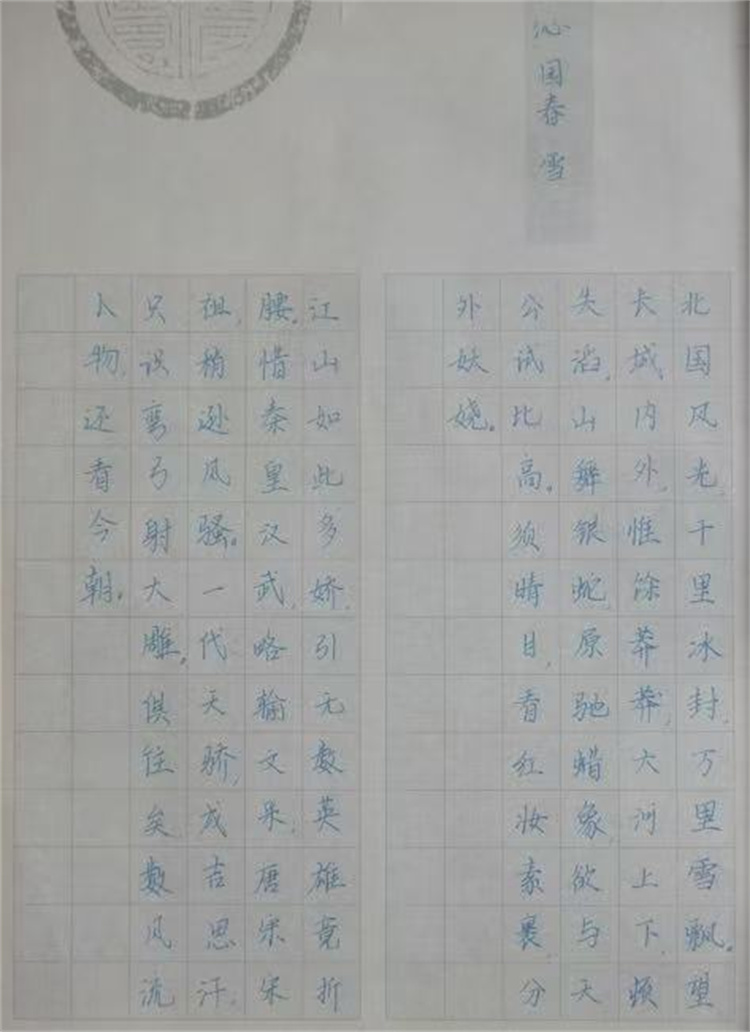 沁园春 雪
北国风光,千里冰封,万里雪飘。望
长城,内外,惟馀莽莽,大河上下,顿
失滔,山舞银蛇,原驰蜡象,欲与天
公试比高。须晴日,看红妆素裹,分
外妖娆。
江山如此多娇,引无数英雄竞折
腰。惜秦皇汉武,略输文采,唐宗宋
祖,稍逊风骚。一代天骄,成吉思汗,
只识弯弓射大雕,俱往矣数风流
人物,还看今朝。